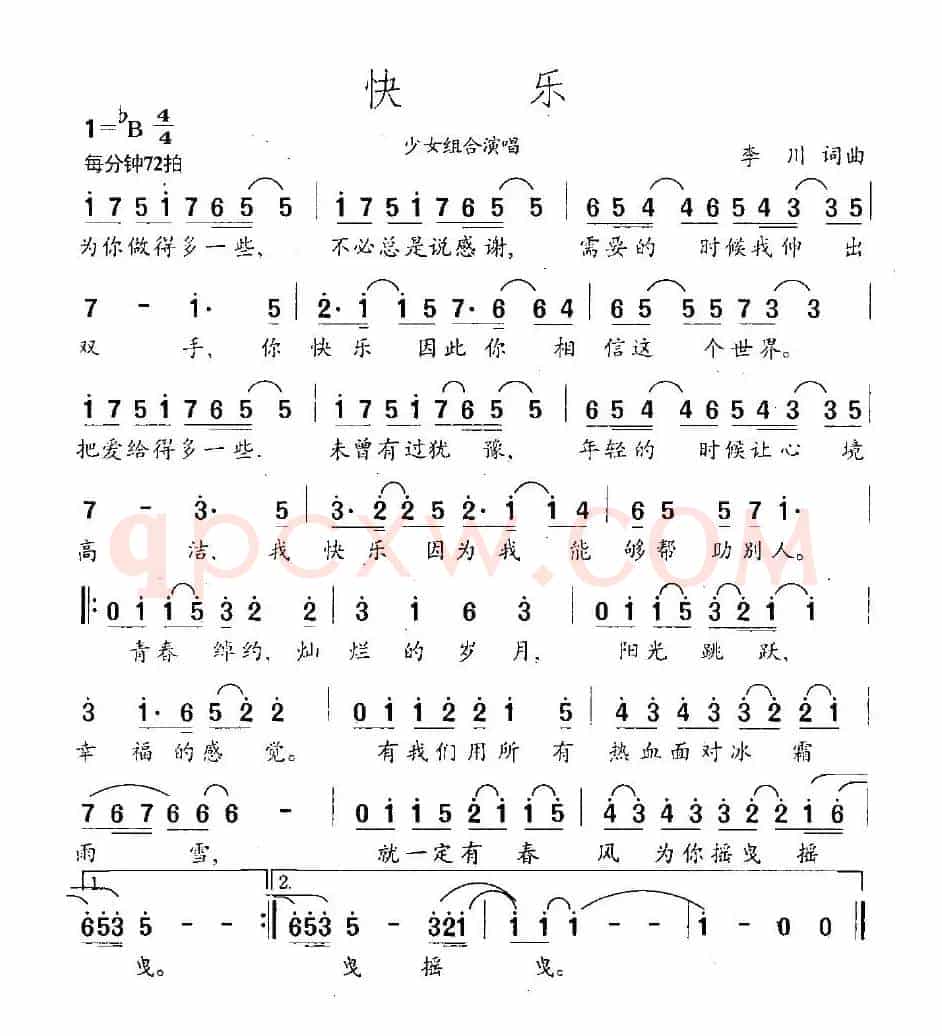 快 乐
1=♭B 4/4
少女组合演唱
李 川 词曲
每分钟72拍
1 7 5 1 7 6 5 5 | 1 7 5 1 7 6 5 5 | 6 5 4 4 6 5 4 3 3 5 |
为你做得多一些、 不必总是说感谢, 需要的 时候我伸出
7 - 1· 5 | 2· 1 1 5 7· 6 6 4 | 6 5 5 5 7 3 3 |
双 手, 你快乐 因此你 相信这 个世界。
1 7 5 1 7 6 5 5 | 1 7 5 1 7 6 5 5 | 6 5 4 4 6 5 4 3 3 5 |
把爱给得多一些. 未曾有过犹 豫, 年轻的 时候让心境
7 - 3· 5 | 3· 2 2 5 2· 1 1 4 | 6 5 5 7 1· |
高 洁、我快乐 因为我 能 够帮 助别人。
qpcxw.com
‖: 0 1 1 5 3 2 2 | 3 1 6 3 | 0 1 1 5 3 2 1 1 |
青春 绰约、灿 烂 的 岁 月, 阳光 跳 跃、
3 1· 6 5 2 2 | 0 1 1 2 2 1 5 | 4 3 4 3 3 2 2 1 |
幸 福的感 觉。 有我们用所 有 热血面对冰 霜
7 6 7 6 6 6 - | 0 1 1 5 2 1 1 5 | 4 3 4 3 3 2 2 1 6 |
雨 雪, 就一定有 春 风 为你摇曳摇
1. 2.
6 5 3 5 - - :‖ 6 5 3 5 - 3 2 1 | 1 1 - - | 1 - 0 0 ‖
曳。 曳 摇 曳。